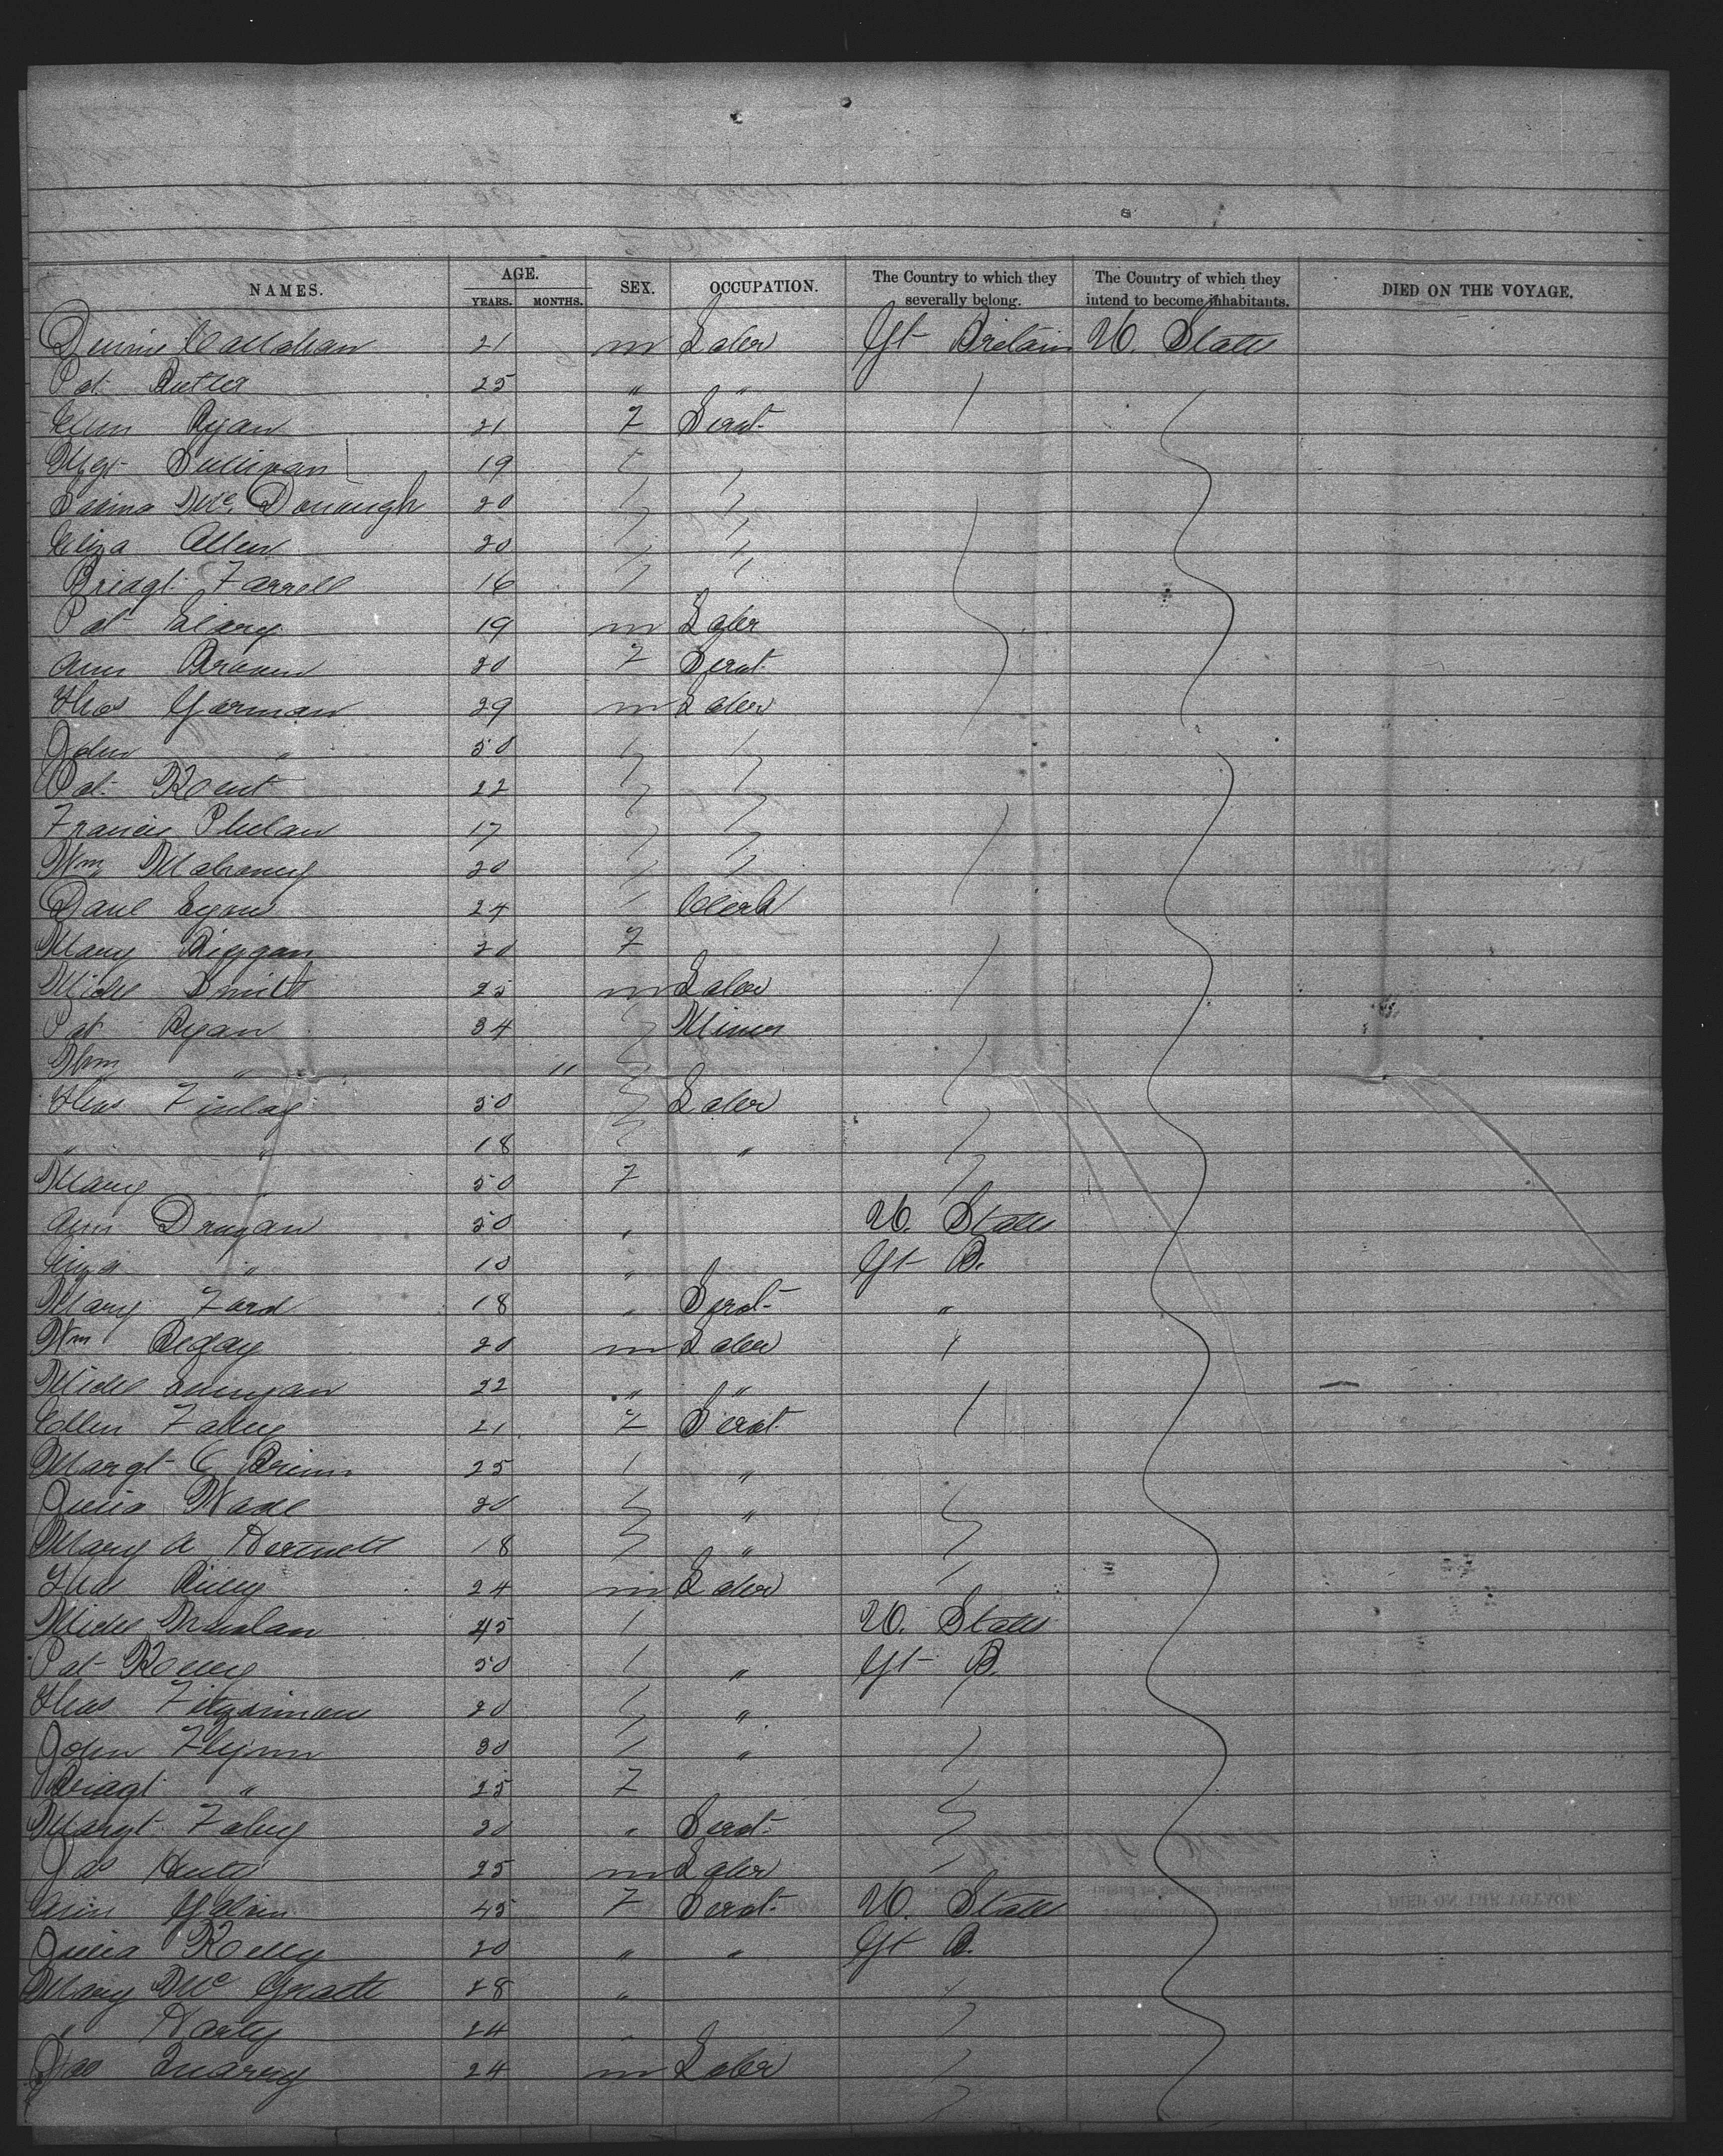 NAMES. AGE. YEARS. MONTHS. SEX. OCCUPATION. The Country to which they severally belong. The Country of which they intend to become inhabitants. DIED ON THE VOYAGE.
Dennis Callahan 21 m Labr Gt Britain U. States
Pat Butler 25 " "
Ellen Ryan 21 F Servt
Mgt Sullivan 19
McDonaugh 20
Eliza Allen 20
Bridgt Farrell 16
Pat Leary 19 m Labr
Ann Brown 20 F Servt
Thos Gorman 29 m Labr
John " 50
Pat Kent 22
Francis Phelan 17
Wm Mahoney 20
Danl Lyons 24 Clerk
Mary Riggan 20 F
Michl Smith 25 m Labr
Pat Ryan 34 Miner
Wm " 11
Thos Finlay 50 Labr
" " 18 "
Mary 50 F
Ann Drugan 50 " U. States
Eliza " 10 " Gt B.
Mary Ford 18 " Servt "
Wm Begay 20 m Labr "
Michl 22 " "
Ellen Fahey 21 F Servt
Margt O Briem 25 "
Julia Wade 20 "
Mary A 18 "
Thos Riley 24 m Labr
Michl 45 U. States
Pat Kelley 50 " Gt B.
Thos Fitzsimons 20 "
John Flynn 30 "
Bridgt " 25 F
Margt Fahey 20 " Servt
Jas 25 m Labr
Ann Galvin 45 F Servt U. States
Julia Kelly 20 " " Gt B.
Mary McGrath 28 " "
" Harty 24 "
Jas Quarry 24 m Labr